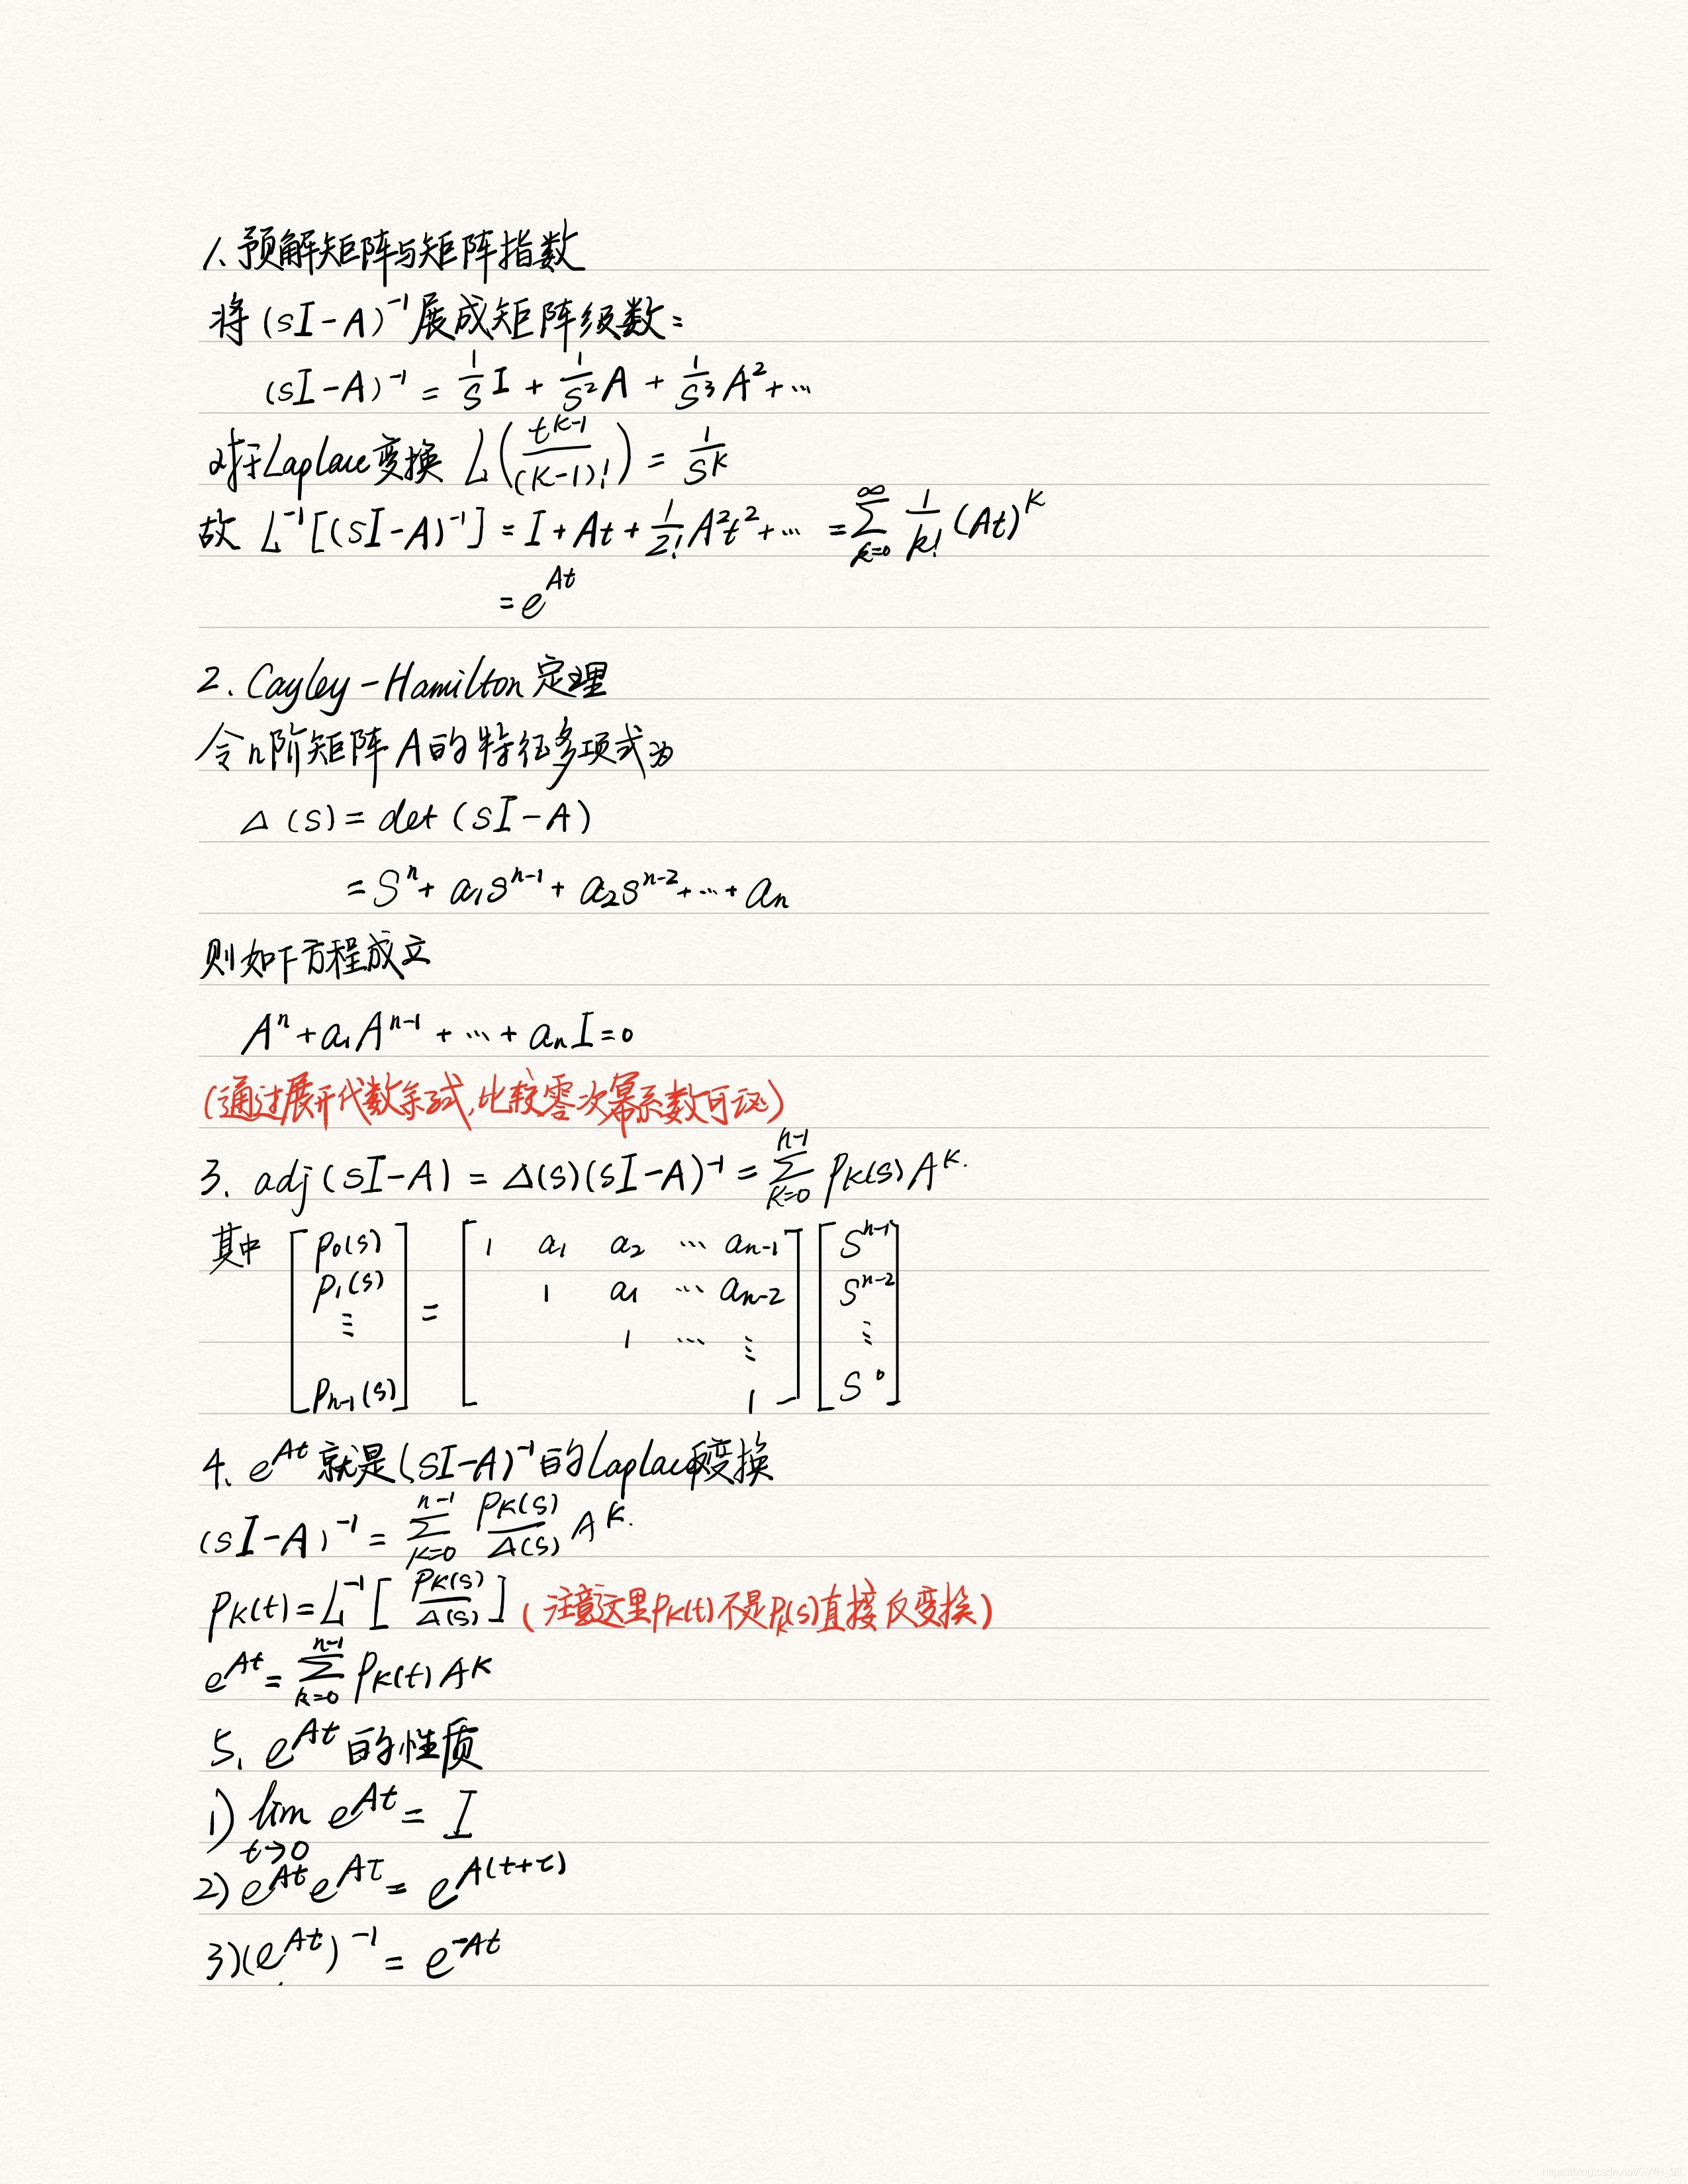 1. 预解矩阵与矩阵指数
将 (sI-A)⁻¹ 展成矩阵级数:
(sI-A)⁻¹ = 1/s I + 1/s² A + 1/s³ A² + ⋯
对于Laplace变换 L(t^(k-1)/(k-1)!) = 1/s^k
故 L⁻¹[(sI-A)⁻¹] = I + At + 1/2! A²t² + ⋯ = ∑_{k=0}^{∞} 1/k! (At)^k
= e^(At)
2. Cayley-Hamilton 定理
令n阶矩阵A的特征多项式为
Δ(s) = det(sI-A)
= s^n + a₁s^(n-1) + a₂s^(n-2) + ⋯ + a_n
则如下方程成立
A^n + a₁A^(n-1) + ⋯ + a_n I = 0
(通过展开代数余子式,比较零次幂系数可证)
3. adj(sI-A) = Δ(s)(sI-A)⁻¹ = ∑_{k=0}^{n-1} p_k(s) A^k.
其中 [p₀(s) p₁(s) ⋮ p_(n-1)(s)] = [1 a₁ a₂ ⋯ a_(n-1); 1 a₁ ⋯ a_(n-2); 1 ⋯ ⋮; 1] [s^(n-1) s^(n-2) ⋮ s⁰]
4. e^(At) 就是 (sI-A)⁻¹ 的Laplace反变换
(sI-A)⁻¹ = ∑_{k=0}^{n-1} p_k(s)/Δ(s) A^k.
p_k(t) = L⁻¹[p_k(s)/Δ(s)] (注意这里p_k(t)不是p_k(s)直接反变换)
e^(At) = ∑_{k=0}^{n-1} p_k(t) A^k
5. e^(At) 的性质
1) lim_{t→0} e^(At) = I
2) e^(At) e^(Aτ) = e^(A(t+τ))
3) (e^(At))⁻¹ = e^(-At)